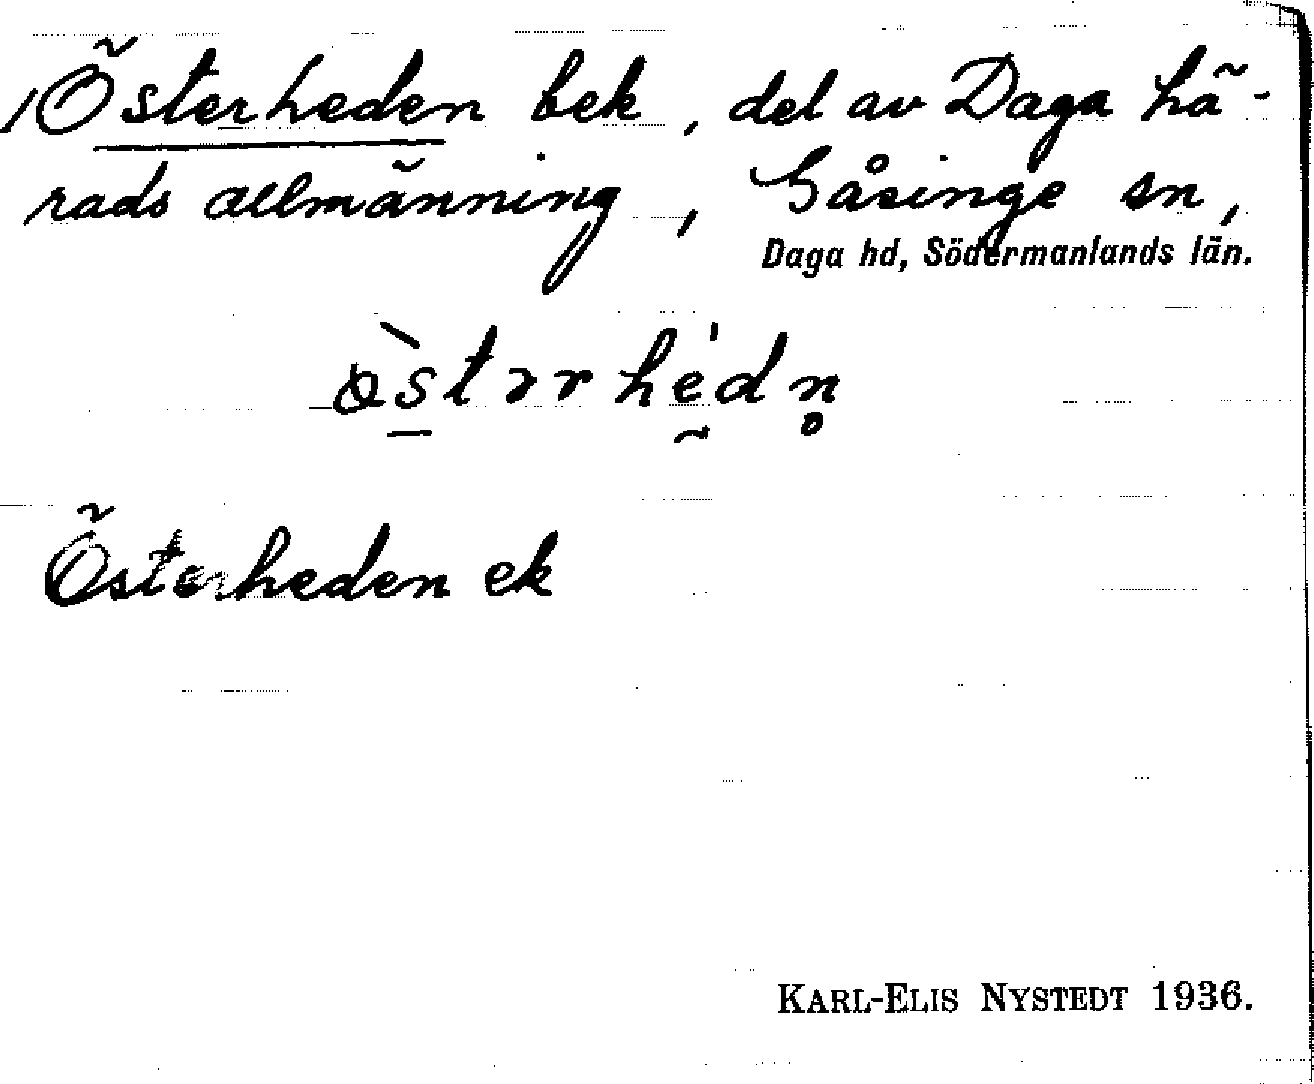 Österheden bek, del av Daga hä-
rads allmänning, Gåsinge sn,
Daga hd, Södermanlands län.
Österheden ek
KARL-ELIS NYSTEDT 1936.